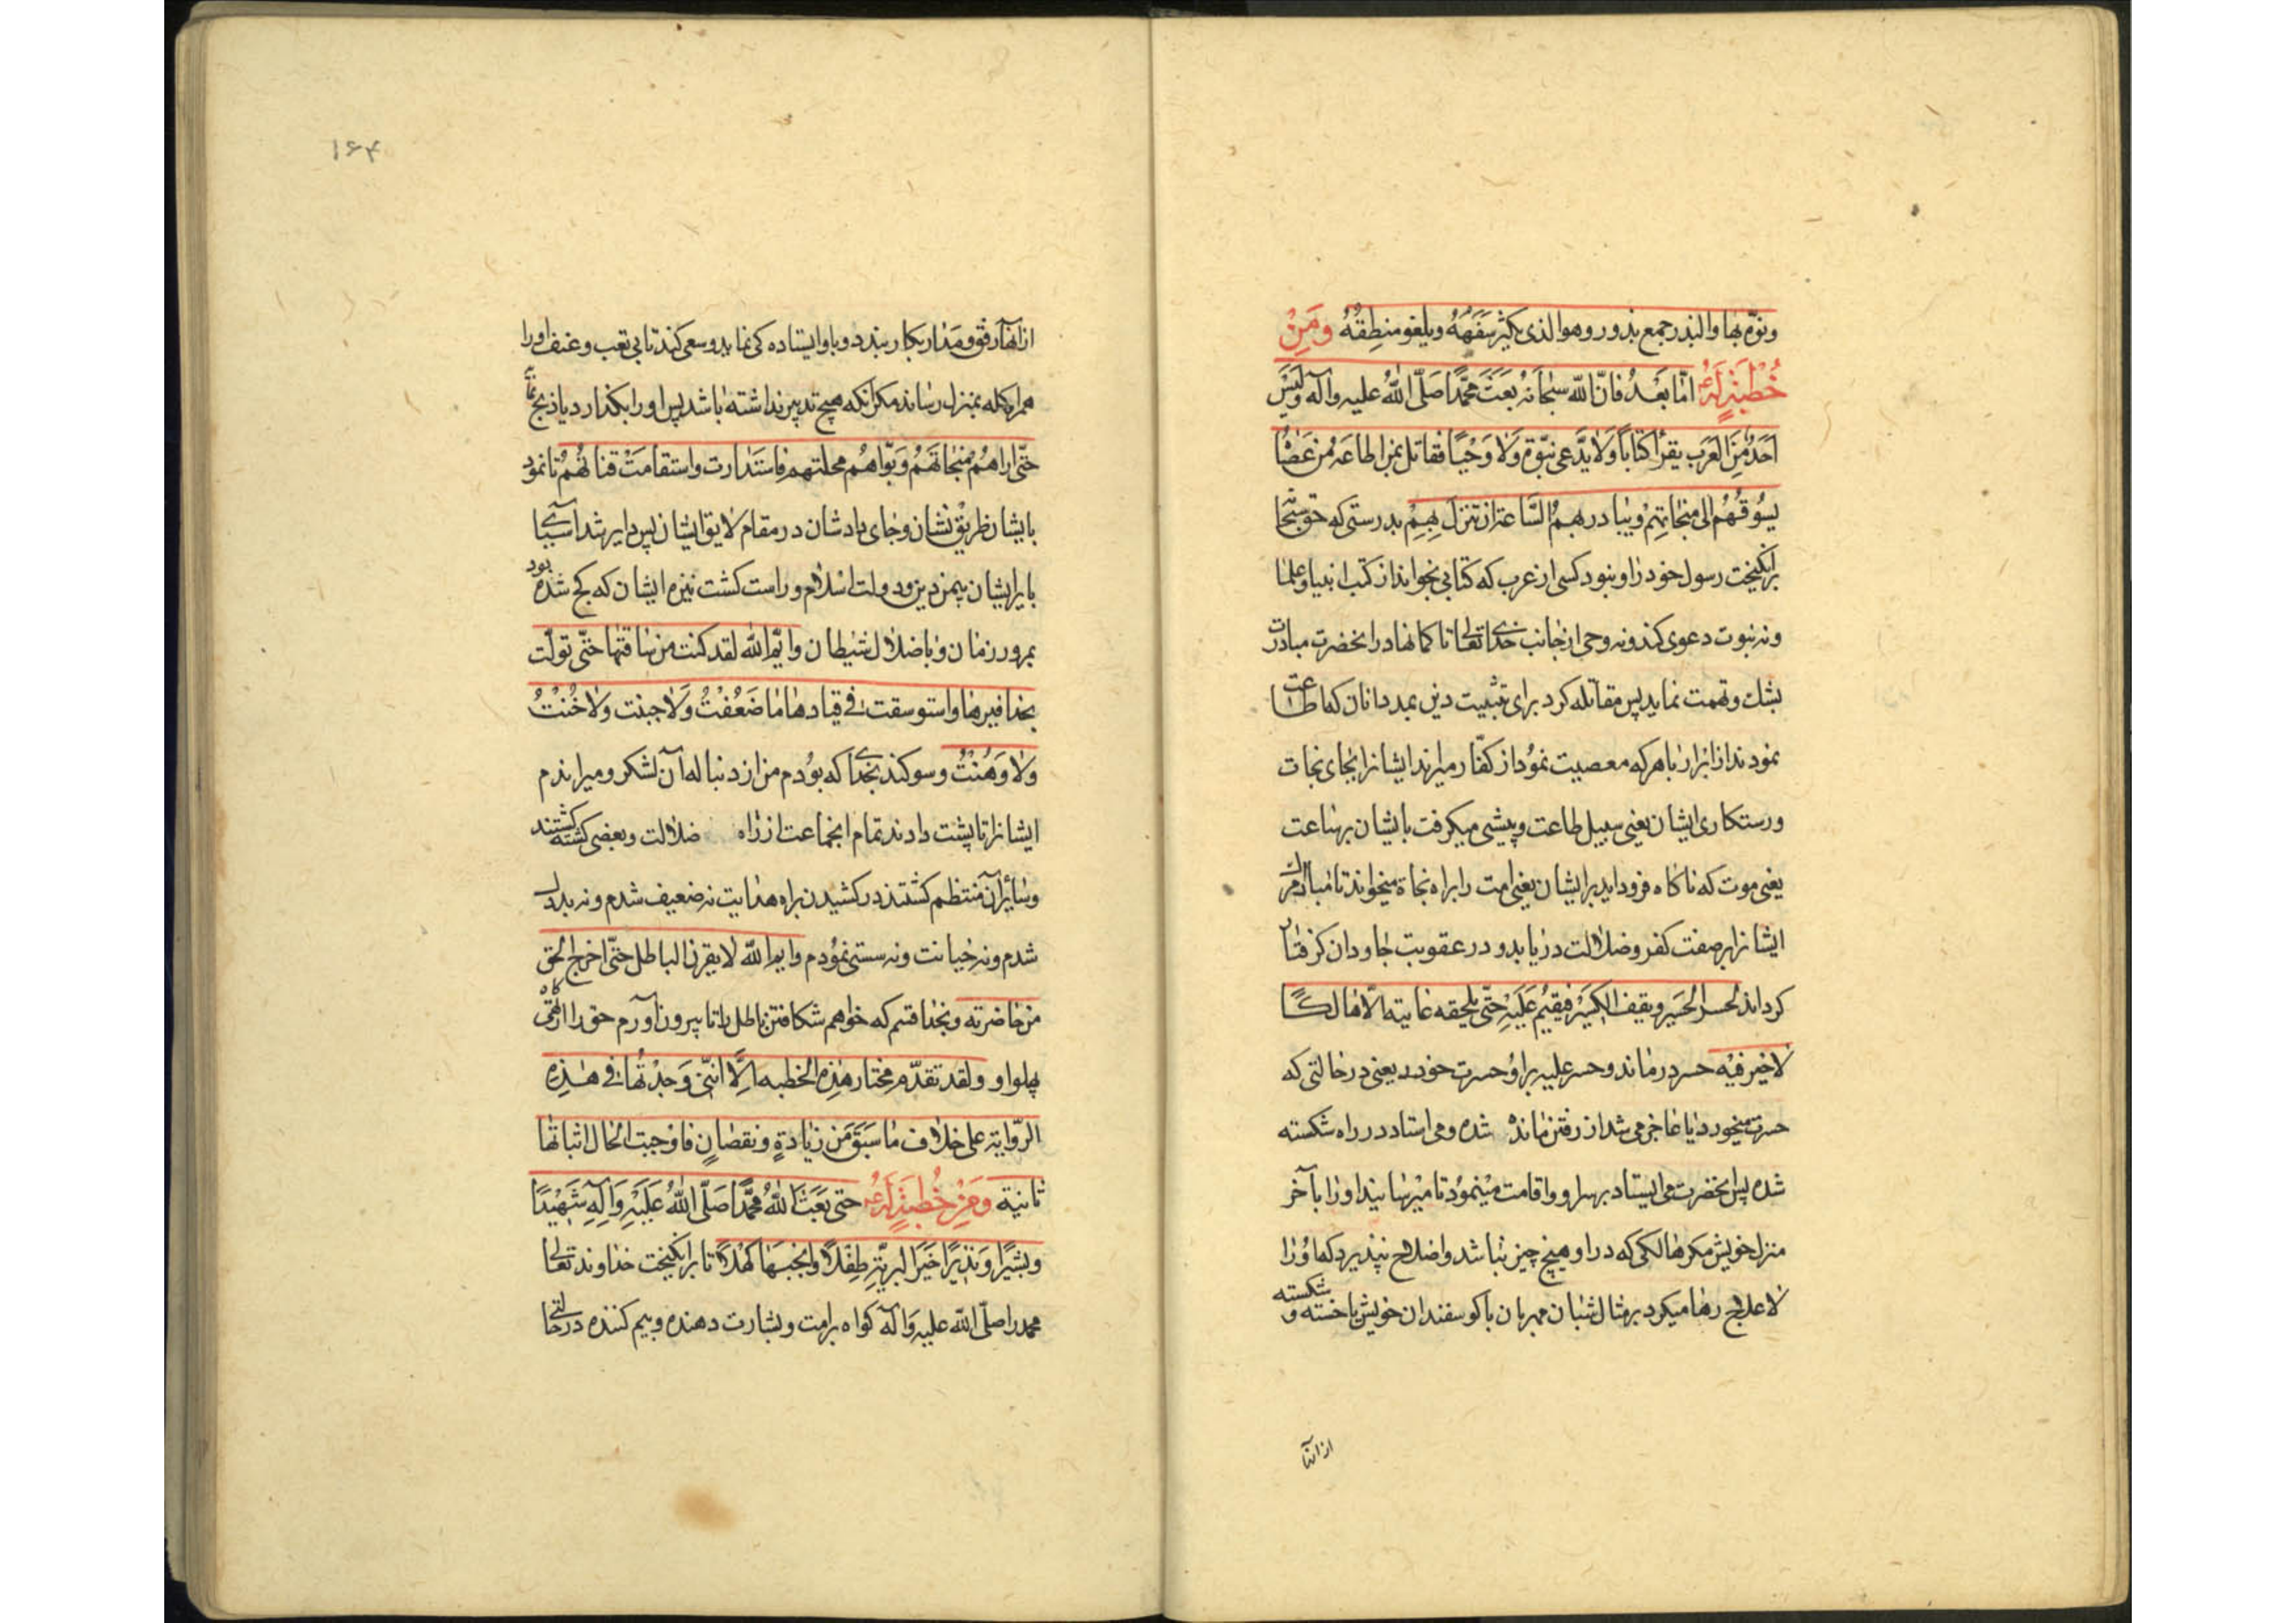 ونوّه بها والبذر جمع بذور وهو الذی یکثر سفهه ویلغو منطقه ومن
خطبة له ع امّا بعد فانّ الله سبحانه بعث محمّدا صلّی الله علیه وآله ولیس
احد من العرب یقرأ کتابا ولا یدّعی نبوّة ولا وحیا فقاتل بمن اطاعه من عصاه
یسوقهم الی منجاتهم ویبادر بهم الساعة ان تنزل بهم بدرستی که حق سبحانه
برانکیخت رسول خود را و نبود کسی از عرب که کتابی بخواند از کتب انبیا و علما
و نه نبوت دعوی کند و نه وحی از جانب خدای تعالی تا کمانها در انحضرت مبادرت
بشك و تهمت نماید پس مقاتله کرد برای تثبیت دین بمدد انان که اطاعت
نمودند از ابرار با هر که معصیت نمود از کفّار میراند ایشانرا بجای نجات
و رستکاری ایشان یعنی سبیل طاعت و پیشی میکرفت بایشان بساعت
یعنی موت که ناکاه فرود اید بر ایشان یعنی امت را براه نجاة میخواند تا مبادا مرك
ایشانرا بر صفت کفر و ضلالت دریابد و در عقوبت جاودان کرفتار
کرداند لحسر الحسیر ویقف الکسیر فیقیم علیه حتّی یلحقه غایته الّا هالکا
لا خیر فیه حسر درماند و حسر علیه بر او حسرت خورد یعنی در حالتی که
حسرت میخورد یا عاجز می شد از رفتن مانده شده و می استاد در راه شکسته
شده پس انحضرت می ایستاد بر سر او و اقامت مینمود تا میرسانید او را بآخر
منزل خویش مکر هالکی که در او هیچ چیز نباشد و اصلاح نپذیرد که او را
لا علاج رها میکرد بر مثال شبان مهربان با کوسفندان خویش با خسته و شکسته
از انها
۱۶۴
از انها رفق و مدارا بکار بندد و با وایستاده کی نماید و سعی کند تا بی تعب و عنف او را
همراه کله بمنزل رساند مکر آنکه هیچ تدبیر نداشته باشد پس او را بکذارد یا ذبح نماید
حتّی اراهم منجاتهم وبوّاهم محلتهم فاستدارت واستقامت قناتهم تا نمود
بایشان طریق نشان و جای دادشان در مقام لایق ایشان پس دایر شد آسیای
با یر ایشان بیمن دین و دولت اسلام و راست کشت نیزه ایشان که کج شده بود
بمرور زمان و باضلال شیطان وایم الله لقد کنت من ساقتها حتّی تولّت
بحذافیرها واستوسقت فی قیادها ما ضعفت ولا جبنت ولا خنت
ولا وهنت و سوکند بخدای که بودم من از دنباله آن لشکر و میراندم
ایشانرا تا پشت دادند تمام انجماعت از راه ضلالت و بعضی کشته کشتند
و سایران منتظم کشتند در کشیدن براه هدایت نه ضعیف شدم و نه بددل
شدم و نه خیانت و نه سستی نمودم وایم الله لابقرنّ الباطل حتّی اخرج الحق
من خاصرته و بخدا قسم که خواهم شکافتن باطل را تا بیرون آورم حق را از تهیکاه
پهلو او ولقد تقدّم مختار هذه الخطبه الّا انّنی وجدتها فی هذه
الرّوایة علی خلاف ما سبق من زیادة ونقصان فاوجبت الحال اثباتها
ثانیة ومن خطبة له ع حتی بعث الله محمّدا صلّی الله علیه وآله شهیدا
وبشیرا ونذیرا خیر البریّة طفلا وانجبها کهلا تا برانکیخت خداوند تعالی
محمد را صلّی الله علیه وآله کواه بر امت و بشارت دهنده و بیم کننده در حالتی